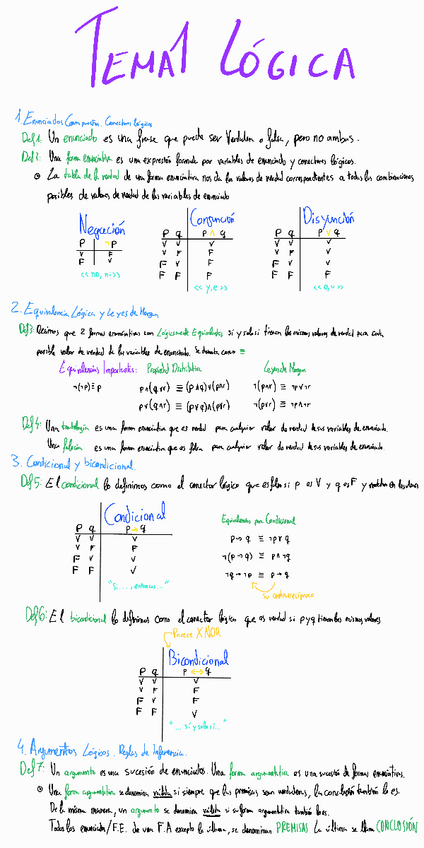 TEMA1 LÓGICA
1. Enunciados Compuestos. Conectores lógicos
Def 1: Un enunciado es una frase que puede ser Verdadera o falsa, pero no ambas.
Def 2: Una forma enunciativa es una expresión formada por variables de enunciado y conectores lógicos.
La tabla de la verdad de una forma enunciativa nos da los valores de verdad correspondientes a todas las combinaciones
posibles de valores de verdad de las variables de enunciado
Negación Conjunción Disyunción
P ¬P P q P ∧ q P q P ∨ q
V F V V V V V V
F V V F F V F V
F V F F V V
F F F F F F
<<no, ...>> <<y, e>> <<o, u>>
2. Equivalencia Lógica y Leyes de Morgan
Def 3: Decimos que 2 formas enunciativas son Lógicamente Equivalentes si y solo si tienen los mismos valores de verdad para cada
posible valor de verdad de las variables de enunciado. Se denota como ≡
Equivalencias Importantes: Propiedad Distributiva Leyes de Morgan
¬(¬p) ≡ p p∧(q∨r) ≡ (p∧q)∨(p∧r) ¬(p∧r) ≡ ¬p∨¬r
p∨(q∧r) ≡ (p∨q)∧(p∨r) ¬(p∨r) ≡ ¬p∧¬r
Def 4: Una tautología es una forma enunciativa que es verdad para cualquier valor de verdad de sus variables de enunciado.
Una es una forma enunciativa que es falsa para cualquier valor de verdad de sus variables de enunciado.
3. Condicional y bicondicional.
Def 5: El condicional lo definimos como el conector lógico que es falso si p es V y q es F y verdad en los demás
Condicional
P q P → q
V V V
V F F
F V V
F F V
"Si ..., entonces ..."
Equivalencias para Condicional
p→q ≡ ¬p∨q
¬(p→q) ≡ p∧¬q
¬q→¬p ≡ p→q
Su contrarrecíproco
Def 6: El bicondicional lo definimos como el conector lógico que es verdad si p y q tienen los mismos valores
Parece XNOR
Bicondicional
P q P ↔ q
V V V
V F F
F V F
F F V
"... si y solo si ..."
4. Argumentos Lógicos. Reglas de Inferencia.
Def 7: Un argumento es una sucesión de enunciados. Una forma argumentativa es una sucesión de formas enunciativas.
Una forma argumentativa se denomina válida si siempre que las premisas sean verdaderas, la conclusión también lo es.
De la misma manera, un argumento se denomina válido si su forma argumentativa también lo es.
Todos los enunciados/F.E. de una F.A excepto la última, se denominan PREMISAS. La última se llama CONCLUSIÓN